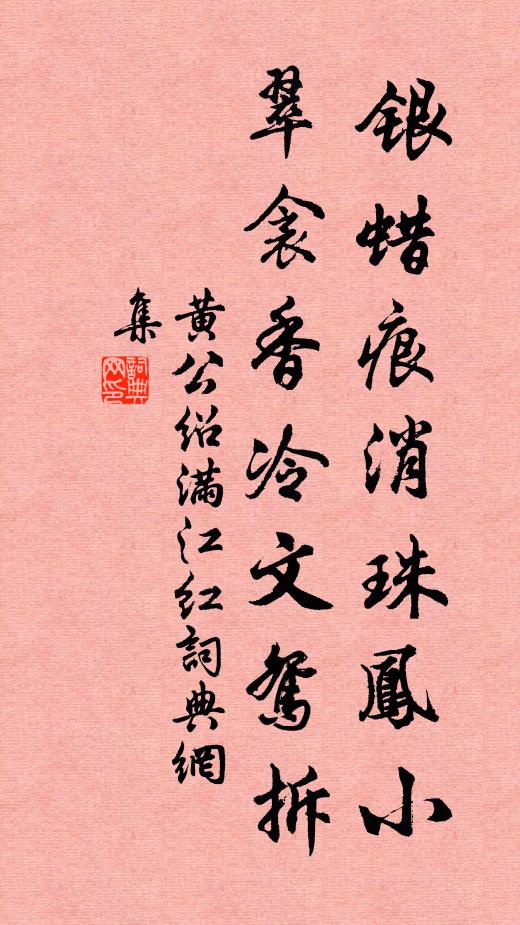 银蜡痕消珠鳳小
翠衾香冷文鸳拆
黄公绍满江红詞典網
集
詞典
网印